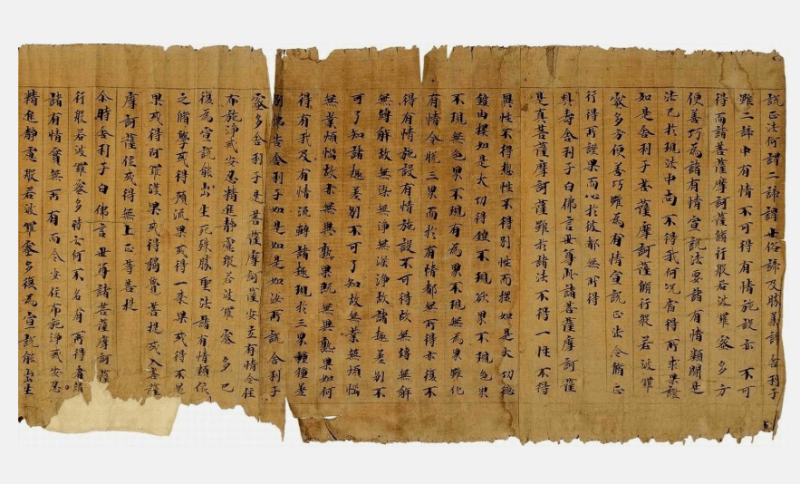 說正法何謂二諦謂世俗諦及勝義諦舍利子
雖二諦中有情不可得有情施設亦不可
得而諸菩薩摩訶薩修行般若波羅蜜多方
便善巧為諸有情宣說法要諸有情類聞是
法已於現法中尚不得我何況當得所求果證
如是舍利子諸菩薩摩訶薩修行般若波羅
蜜多方便善巧雖為有情宣說正法令修正
行得所證果而心於彼都無所得
具壽舍利子白佛言世尊此諸菩薩摩訶薩
是真菩薩摩訶薩雖於諸法不得一性不得
異性不得總性不得別性而擐如是大功德
鎧由擐如是大功德鎧不現欲界不現色界
不現無色界不現有為界不現無為界雖化
有情令脫三界而於有情都無所得亦復不
得有情施設有情施設不可得故無縛無解
無縛解故無染無淨無染淨故諸趣差別不
可了知諸趣差別不可了知故無業無煩惱
無業煩惱故亦無異熟果既無異熟果如何
得有我及有情流轉諸趣現於三界種種差
別佛告舍利子如是如是如汝所說舍利子
蜜多舍利子是菩薩摩訶薩安立有情令住
布施淨戒安忍精進靜慮般若波羅蜜多已
復為宣說能出生死殊勝聖法諸有情類依
之修學或得預流果或得一來果或得不還
果或得阿羅漢果或得獨覺菩提或入菩薩
摩訶薩位或得無上正等菩提
爾時舍利子白佛言世尊諸菩薩摩訶薩
行般若波羅蜜多時云何不名有所得者
諸有情實無所有而令安住布施淨戒安忍
精進靜慮般若波羅蜜多復為宣說能出生